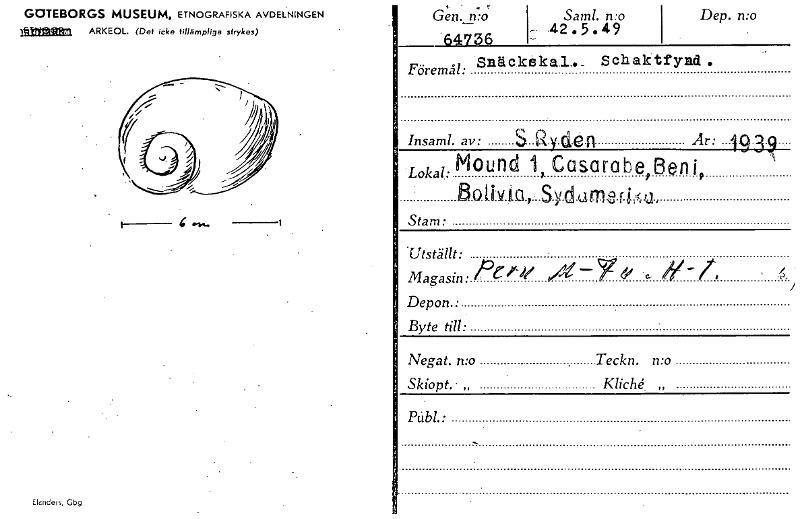 GÖTEBORGS MUSEUM, ETNOGRAFISKA AVDELNINGEN
ARKEOL. (Det icke tillämpliga strykes)
6 cm
Elanders, Gbg
Gen. n:o Saml. n:o Dep. n:o
64736 42.5.49
Föremål: Snäckskal. Schaktfynd.
Insaml. av: S Ryden År: 1939
Lokal: Mound 1, Casarabe, Beni,
Bolivia, Sydamerika.
Stam:
Utställt:
Magasin: Peru
Depon.:
Byte till:
Negat. n:o Teckn. n:o
Skiopt. „ Kliché „
Publ.: